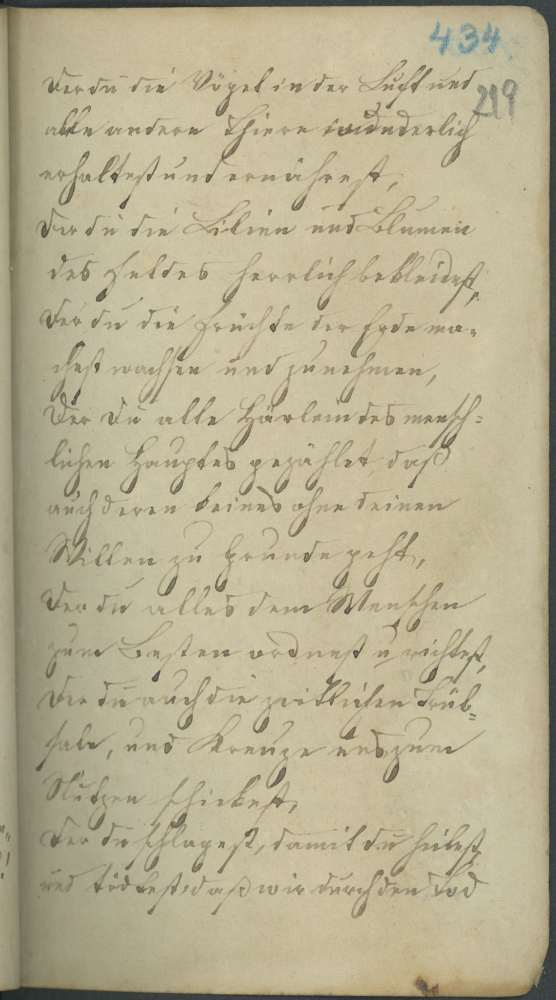 434
219
Der du die Vögel in der Luft und
alle andern Thiere wunderlich
erhaltest und ernährest,
Der du die Lilien und Blumen
des Feldes herrlich bekleidest,
Der du die Früchte der Erde ma-
chest wachsen und zunehmen,
Der Du alle Härlein des mensch-
lichen Hauptes gezählet, daß
auch deren keines ohne deinen
Willen zu Grunde geht,
Der du alles dem Menschen
zum Besten ordnest u richtest,
Der du auch die zeitlichen Trüb-
sale, und Kreuze uns zum
Nutzen schickest,
Der du schlagest, damit du heilest,
und tödtest, daß wir durch den Tod